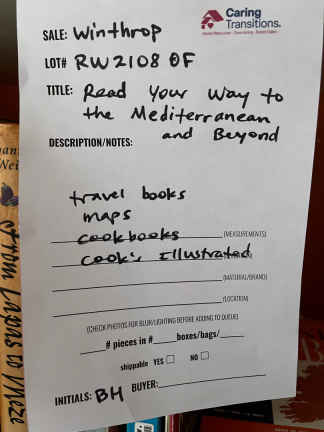 Caring
Transitions.
SALE: Winthrop
LOT# RW2108 OF
TITLE: Read Your Way to
the Mediterranean
and Beyond
DESCRIPTION/NOTES:
travel books
maps
cookbooks (MEASUREMENTS)
Cook's Illustrated
(MATERIAL/BRAND)
(LOCATION)
(CHECK PHOTOS FOR BLUR/LIGHTING BEFORE ADDING TO QUEUE)
# pieces in # boxes/bags/
shippable YES NO
INITIALS: BH BUYER: